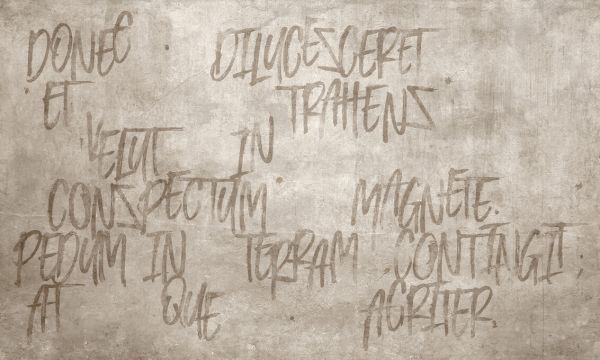 DONEC DILUCESCERET
ET TRAHENS
VELUT IN
CONSPECTUM MAGNETE.
PEDUM IN TERRAM CONTINGIT;
AT QUE ACRITER.